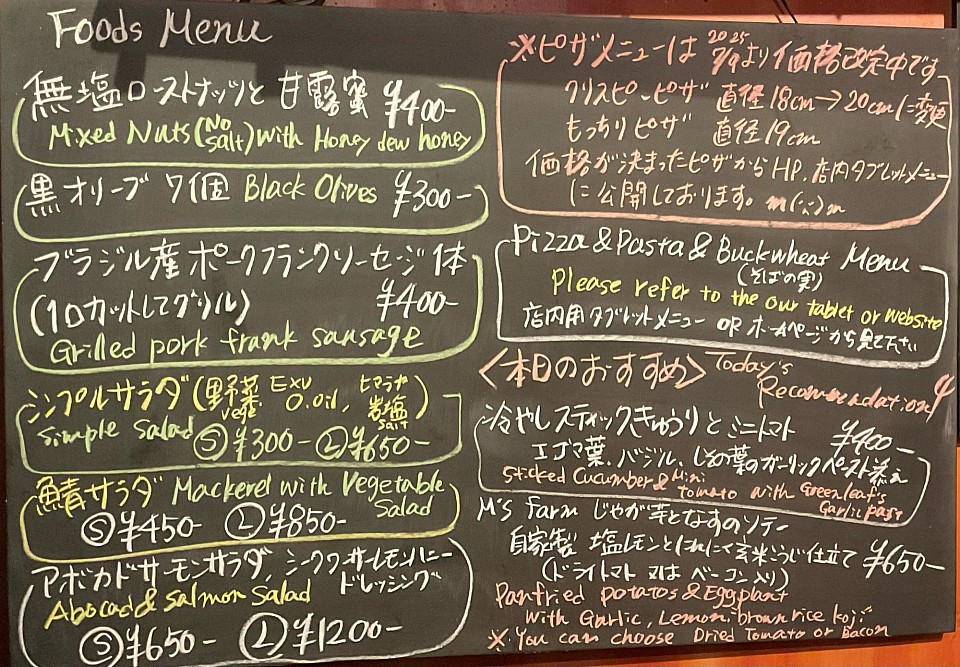 Foods Menu
無塩ローストナッツと甘露蜜 ¥400-
Mixed Nuts (No Salt) with Honey dew honey
黒オリーブ 7個 Black Olives ¥300-
ブラジル産ポークフランクソーセージ1本
(10カットしてグリル) ¥400-
Grilled pork frank sausage
シンプルサラダ(野菜 vege EXV O.oil, ヒマラヤ岩塩 salt)
Simple Salad Ⓢ¥300- Ⓛ¥650-
鯖サラダ Mackerel with Vegetable Salad
Ⓢ¥450- Ⓛ¥850-
アボカドサーモンサラダ, シークワーサーレモンハニー
ドレッシング
Abocad & Salmon Salad
Ⓢ¥650- Ⓛ¥1200-
※ピザメニューは 2025 7/9より価格改定中です
クリスピーピザ 直径18cm→20cmに変更
もっちりピザ 直径19cm
価格が決まったピザからHP、店内タブレットメニュー
に公開しております。m(_ _)m
Pizza & Pasta & Buckwheat Menu
(そばの実)
Please refer to the our tablet or website
店内用タブレットメニュー OR ホームページから見て下さい
<本日のおすすめ> Today's
Recommendation
冷やしスティックきゅうりとミニトマト ¥400-
エゴマ葉、バジル、しその葉のガーリックペースト添え
Sticked Cucumber & Mini
tomato with Greenleaf's
Garlic past
M's Farm じゃが芋となすのソテー
自家製 塩レモンとにんにく玄米こうじ仕立て ¥650-
(ドライトマト 又は ベーコン入り)
Panfried potatos & Eggplant
with Garlic, Lemon, brown rice koji
※ You can choose Dried Tomato or Bacon